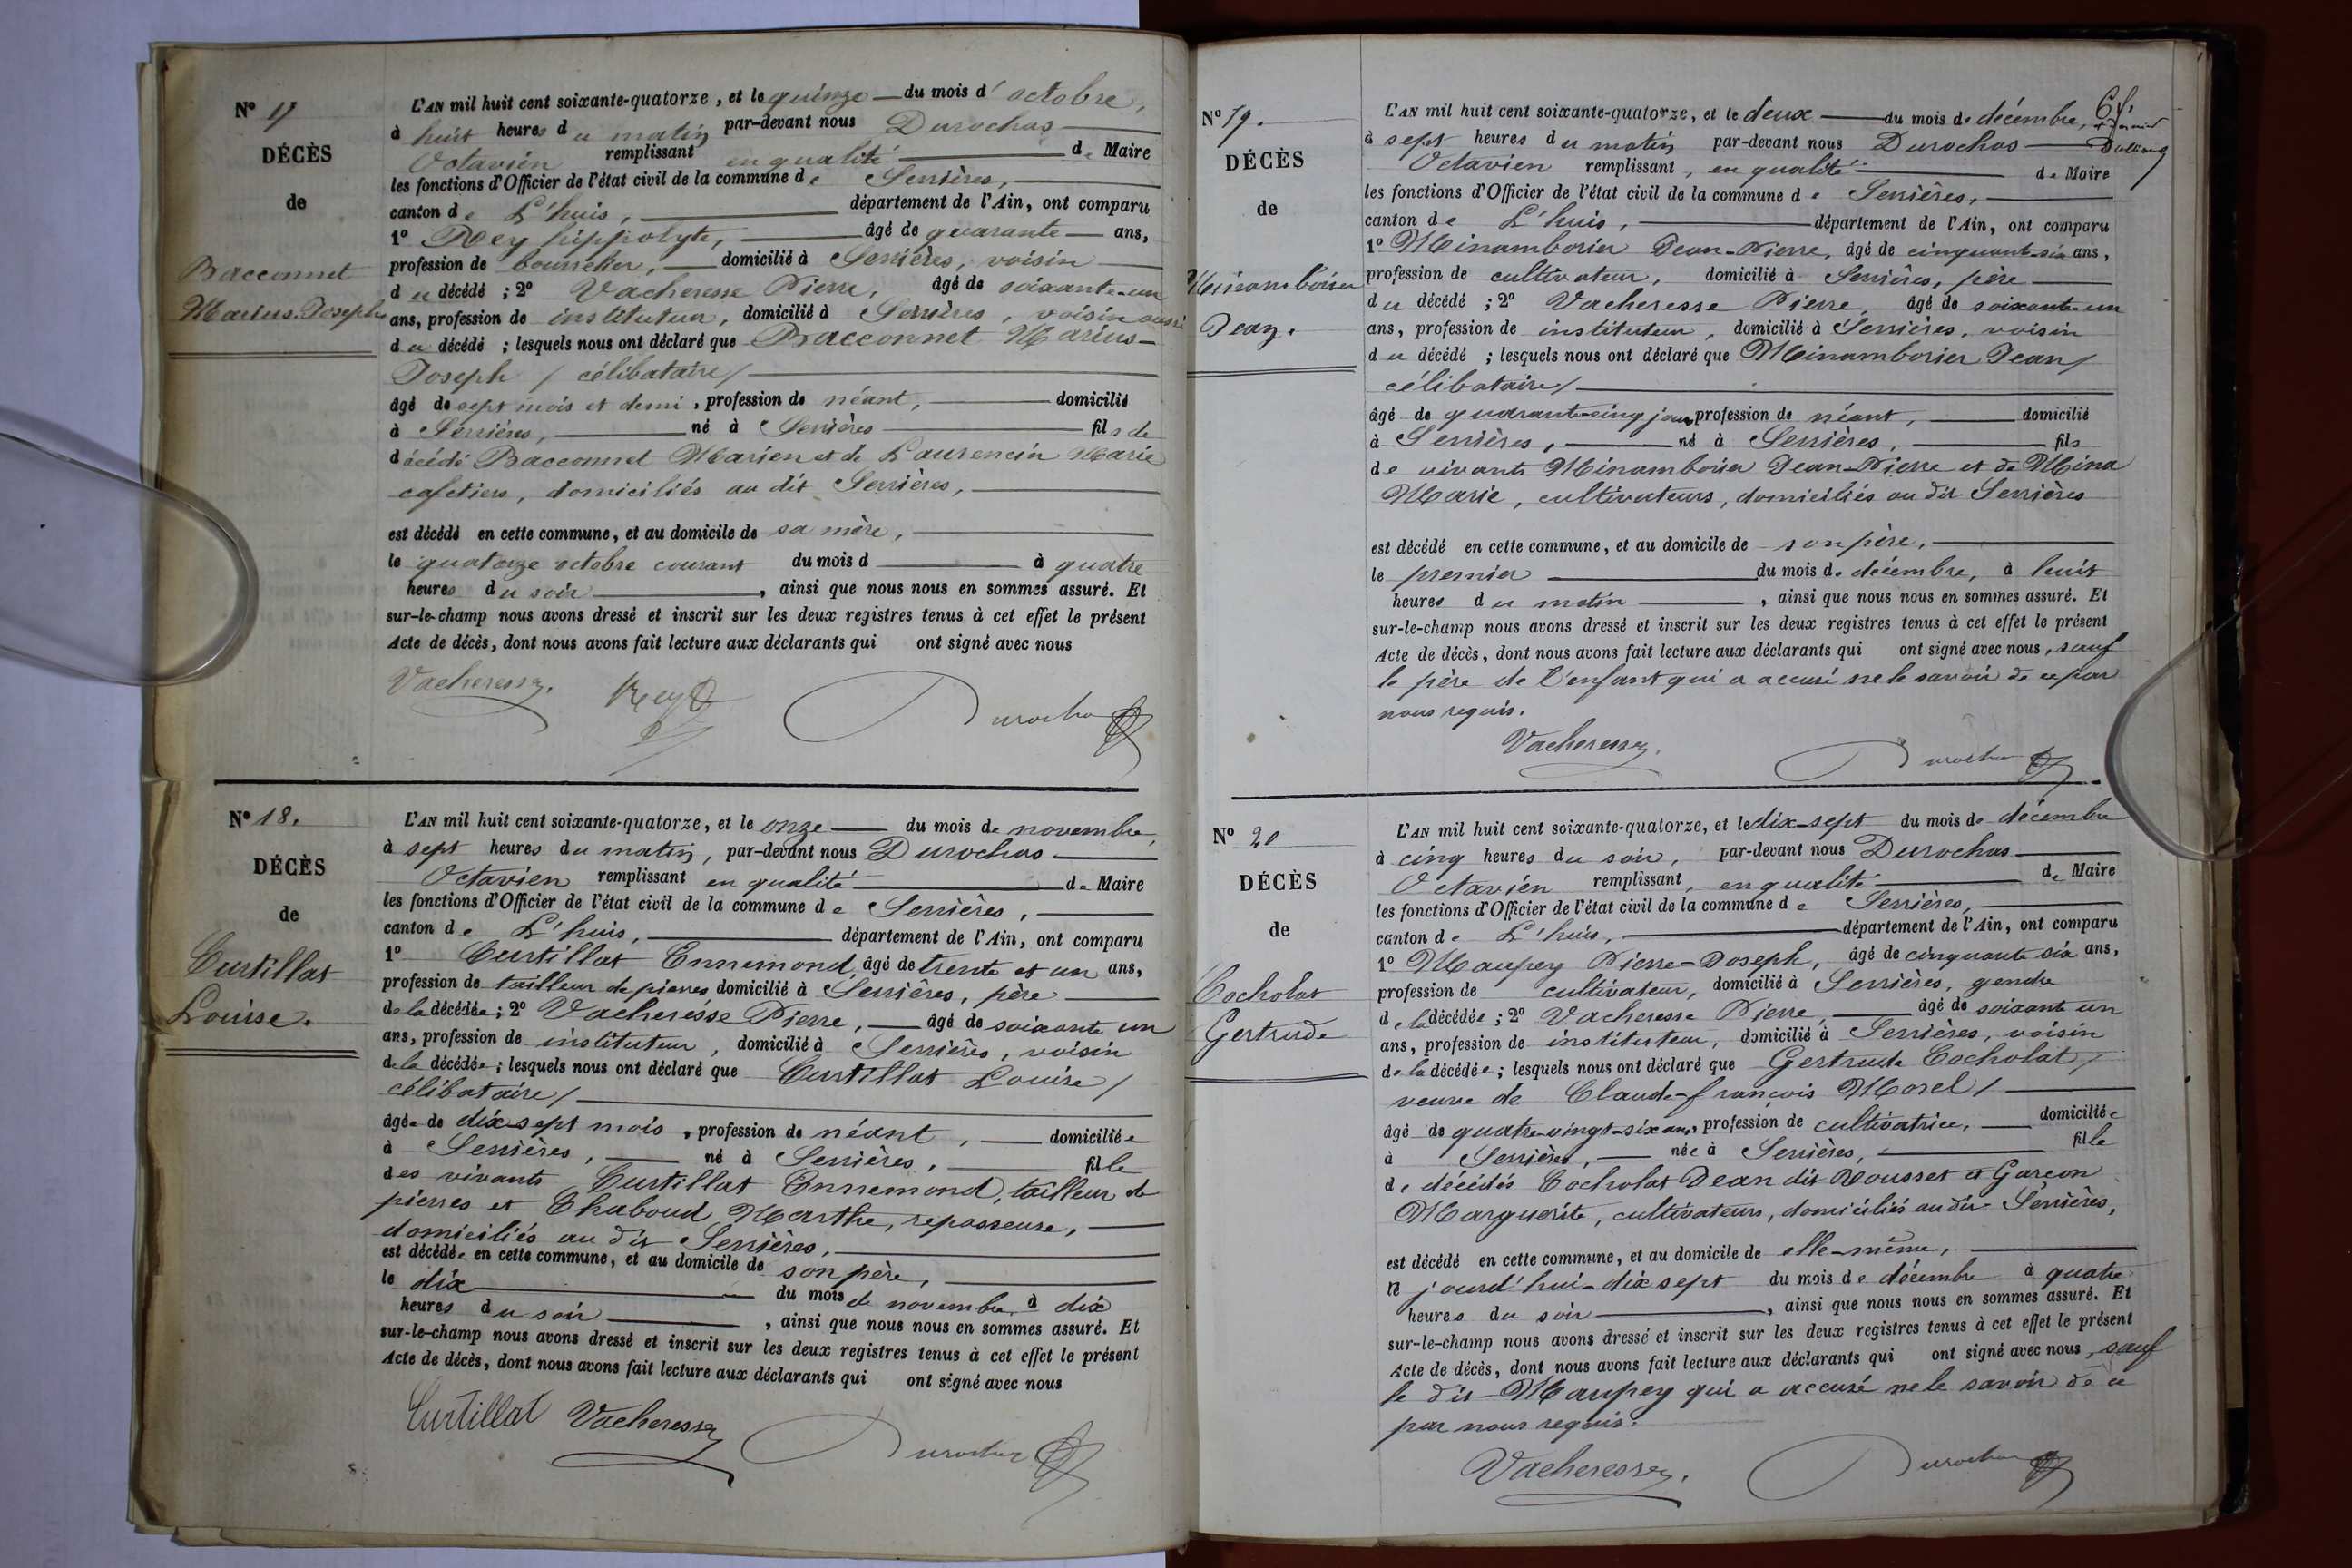 N° 17
DÉCÈS
de
Bacconnet
Marius-Joseph
L'AN mil huit cent soixante-quatorze, et le quinze du mois d'octobre,
à huit heures du matin par-devant nous Durochas
Octavien remplissant en qualité de Maire
les fonctions d'Officier de l'état civil de la commune de Serrières,
canton de L'huis, département de l'Ain, ont comparu
1° Rey hippolyte, âgé de quarante ans,
profession de bourrelier, domicilié à Serrières, voisin
du décédé ; 2° Vacheresse Pierre, âgé de soixante-un
ans, profession de instituteur, domicilié à Serrières, voisin aussi
du décédé ; lesquels nous ont déclaré que Bacconnet Marius-
Joseph / célibataire /
âgé de sept mois et demi, profession de néant, domicilié
à Serrières, né à Serrières fils de
décédé Bacconnet Marien et de Laurencin Marie
cafetiers, domiciliés au dit Serrières,
est décédé en cette commune, et au domicile de sa mère,
le quatorze octobre courant du mois d à quatre
heures du soir, ainsi que nous nous en sommes assuré. Et
sur-le-champ nous avons dressé et inscrit sur les deux registres tenus à cet effet le présent
Acte de décès, dont nous avons fait lecture aux déclarants qui ont signé avec nous
Vacheresse. Rey Durochas
N° 18.
DÉCÈS
de
Curtillat
Louise.
L'AN mil huit cent soixante-quatorze, et le onze du mois de novembre,
à sept heures du matin, par-devant nous Durochas
Octavien remplissant en qualité de Maire
les fonctions d'Officier de l'état civil de la commune de Serrières,
canton de L'huis, département de l'Ain, ont comparu
1° Curtillat Ennemond, âgé de trente et un ans,
profession de tailleur de pierres domicilié à Serrières, père
de la décédée ; 2° Vacheresse Pierre, âgé de soixante un
ans, profession de instituteur, domicilié à Serrières, voisin
de la décédée ; lesquels nous ont déclaré que Curtillat Louise /
célibataire /
âgée de dix-sept mois, profession de néant, domiciliée
à Serrières, né à Serrières, fille
des vivants Curtillat Ennemond, tailleur de
pierres et Chaboud Marthe, repasseuse,
domiciliés au dit Serrières,
est décédée en cette commune, et au domicile de son père,
le dix du mois de novembre à dix
heures du soir, ainsi que nous nous en sommes assuré. Et
sur-le-champ nous avons dressé et inscrit sur les deux registres tenus à cet effet le présent
Acte de décès, dont nous avons fait lecture aux déclarants qui ont signé avec nous
Curtillat Vacheresse Durochas
N° 19.
DÉCÈS
de
Minamborier
Jean.
L'AN mil huit cent soixante-quatorze, et le deux du mois de décembre,
à sept heures du matin par-devant nous Durochas
Octavien remplissant, en qualité de Maire
les fonctions d'Officier de l'état civil de la commune de Serrières,
canton de L'huis, département de l'Ain, ont comparu
1° Minamborier Jean-Pierre, âgé de cinquante-six ans,
profession de cultivateur, domicilié à Serrières, père
du décédé ; 2° Vacheresse Pierre, âgé de soixante-un
ans, profession de instituteur, domicilié à Serrières, voisin
du décédé ; lesquels nous ont déclaré que Minamborier Jean /
célibataire /
âgé de quarante-cinq jours, profession de néant, domicilié
à Serrières, né à Serrières, fils
de vivants Minamborier Jean-Pierre et de Mina
Marie, cultivateurs, domiciliés au dit Serrières
est décédé en cette commune, et au domicile de son père,
le premier du mois de décembre, à huit
heures du matin, ainsi que nous nous en sommes assuré. Et
sur-le-champ nous avons dressé et inscrit sur les deux registres tenus à cet effet le présent
Acte de décès, dont nous avons fait lecture aux déclarants qui ont signé avec nous, sauf
le père de l'enfant qui a accusé ne le savoir de ce par
nous requis.
Vacheresse. Durochas
N° 20
DÉCÈS
de
Cocholat
Gertrude
L'AN mil huit cent soixante-quatorze, et le dix-sept du mois de décembre
à cinq heures du soir, par-devant nous Durochas
Octavien remplissant, en qualité de Maire
les fonctions d'Officier de l'état civil de la commune de Serrières,
canton de L'huis, département de l'Ain, ont comparu
1° Maupey Pierre-Joseph, âgé de cinquante six ans,
profession de cultivateur, domicilié à Serrières, gendre
de la décédée ; 2° Vacheresse Pierre, âgé de soixante un
ans, profession de instituteur, domicilié à Serrières, voisin
de la décédée ; lesquels nous ont déclaré que Gertrude Cocholat /
veuve de Claude-françois Morel /
âgé de quatre-vingt-six ans, profession de cultivatrice, domiciliée
à Serrières, née à Serrières, fille
de décédés Cocholat Jean dit Rousset et Garçon
Marguerite, cultivateurs, domiciliés au dit Serrières,
est décédé en cette commune, et au domicile de elle-même,
le jourd'hui dix sept du mois de décembre à quatre
heures du soir, ainsi que nous nous en sommes assuré. Et
sur-le-champ nous avons dressé et inscrit sur les deux registres tenus à cet effet le présent
Acte de décès, dont nous avons fait lecture aux déclarants qui ont signé avec nous, sauf
le dit Maupey qui a accusé ne le savoir de ce
par nous requis.
Vacheresse. Durochas